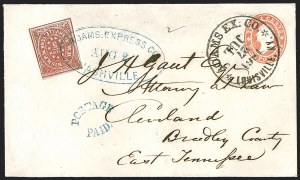 ADAMS EXPRESS CO.
AUG
NASHVILLE
ADAMS EX. CO.
LOUISVILLE KY
J. H. Gaut Esqr
Attorney at Law
Cleveland
POSTAGE
PAID.
Bradley County
East Tennessee